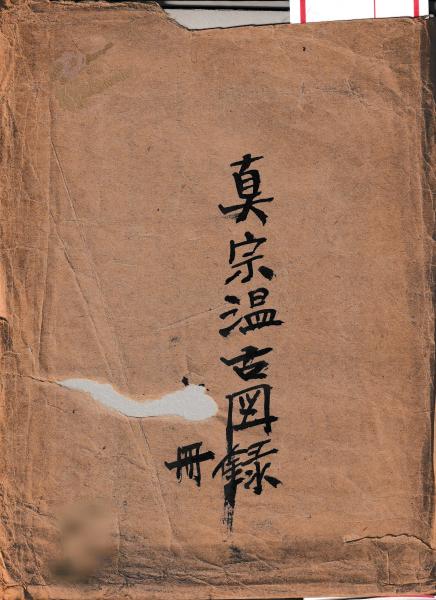 真宗温古図録
冊